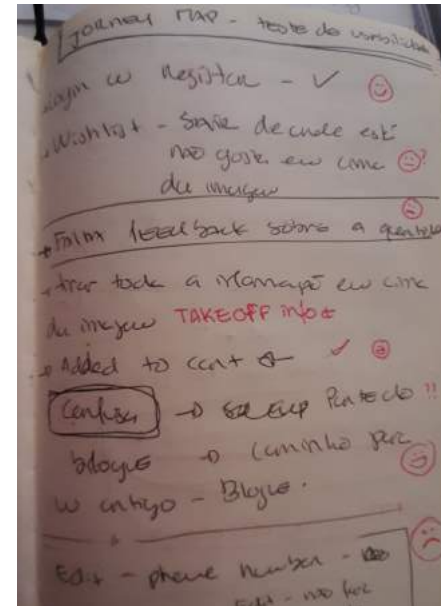 JORNEY MAP - teste de usabilidade
Login ou Register - ✓
Wishlist - Saia de onde está
não gosta em cima ?
da imagem
Falta feedback sobre a
tirar toda a informação em cima
da imagem TAKEOFF info
Added to cart ✓
Confusa → !!
blogue → Caminho para
o artigo - Blogue.
Edit - phone number -
Edit - não